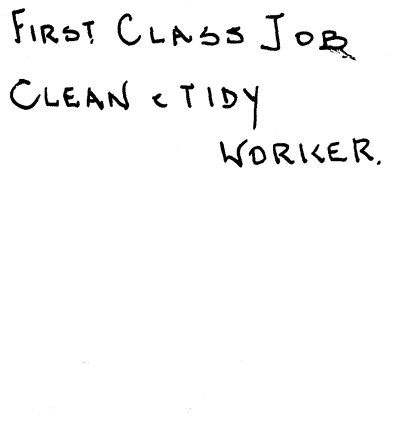 FIRST CLASS JOB
CLEAN & TIDY
WORKER.